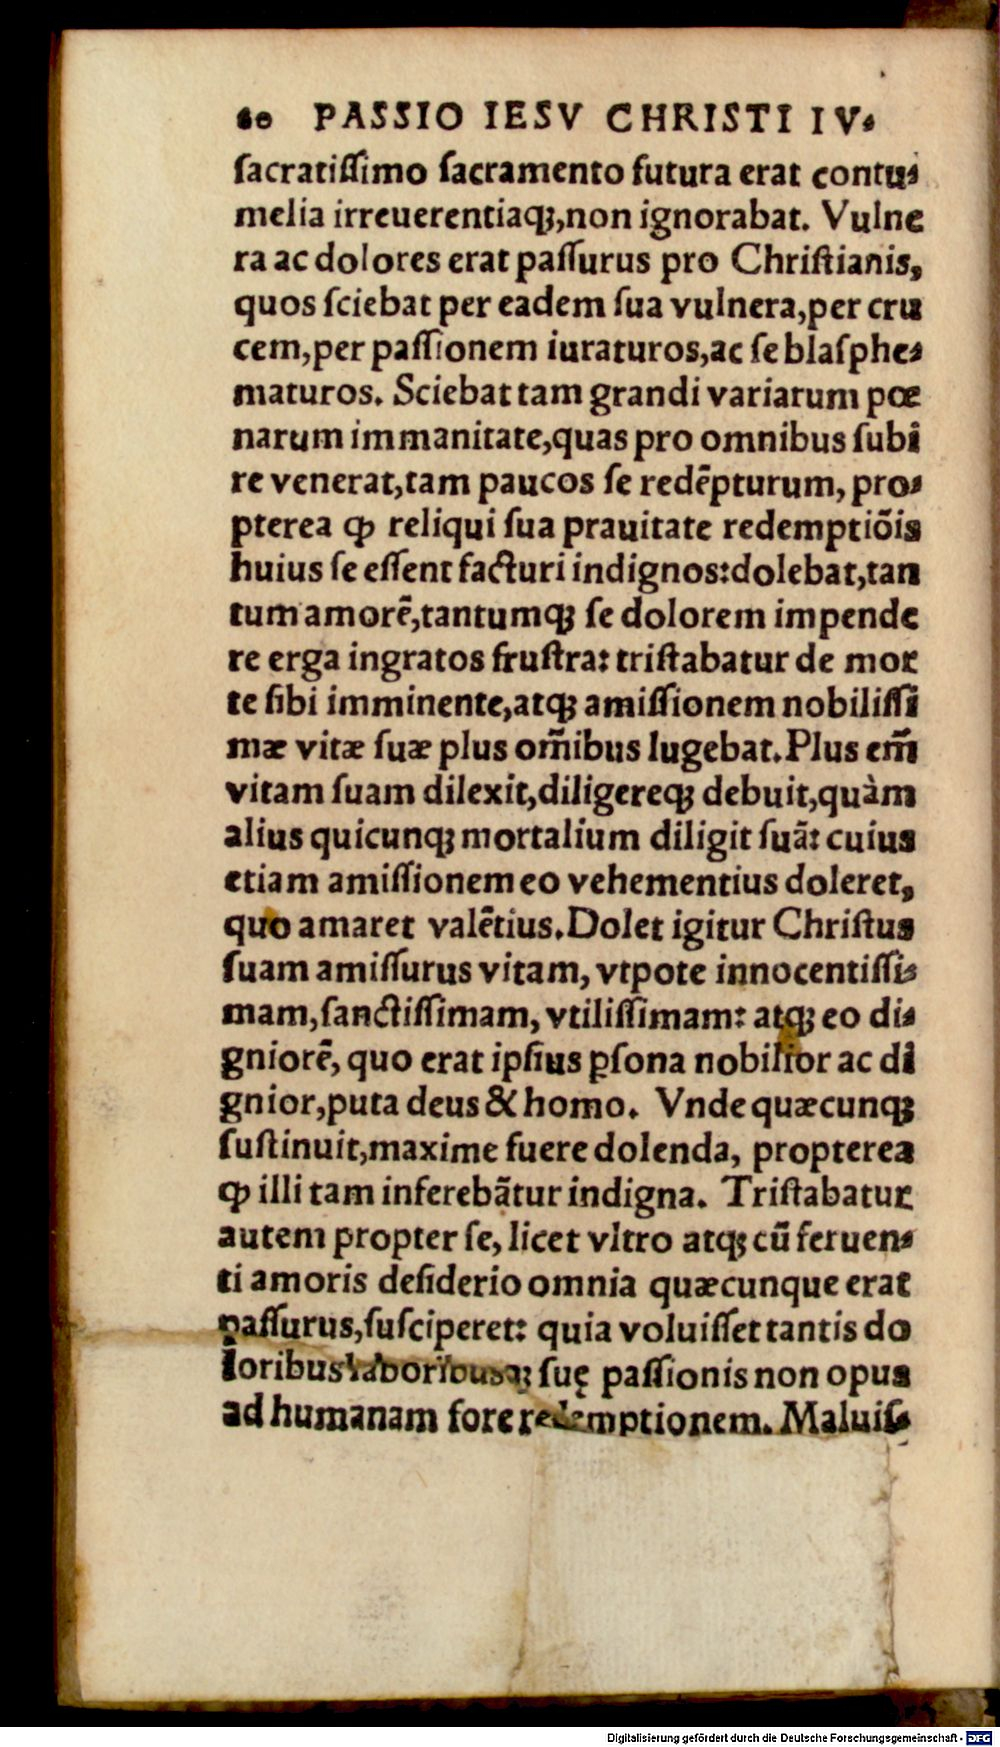 60 PASSIO IESV CHRISTI IV⸗
ſacratiſſimo ſacramento futura erat contu⸗
melia irreuerentiaq;,non ignorabat. Vulne
ra ac dolores erat paſſurus pro Chriſtianis,
quos ſciebat per eadem ſua vulnera,per cru
cem,per paſſionem iuraturos,ac ſe blaſphe⸗
maturos. Sciebat tam grandi variarum pœ
narum immanitate,quas pro omnibus ſubi
re venerat,tam paucos ſe redēpturum, pro⸗
pterea ꝙ reliqui ſua prauitate redemptiōis
huius ſe eſſent facturi indignos:dolebat,tan
tum amorē,tantumq; ſe dolorem impende
re erga ingratos fruſtra: triſtabatur de mor
te ſibi imminente,atq; amiſſionem nobiliſſi
mæ vitæ ſuæ plus om̄ibus lugebat.Plus em̄
vitam ſuam dilexit,diligereq; debuit,quàm
alius quicunq; mortalium diligit ſuā: cuius
etiam amiſſionem eo vehementius doleret,
quo amaret valētius.Dolet igitur Chriſtus
ſuam amiſſurus vitam, vtpote innocentiſſi⸗
mam,ſanctiſſimam, vtiliſſimam: atq; eo di⸗
gniorē, quo erat ipſius ꝑſona nobilior ac di
gnior,puta deus & homo. Vnde quæcunq;
ſuſtinuit,maxime fuere dolenda, propterea
ꝙ illi tam inferebātur indigna. Triſtabatur
autem propter ſe, licet vltro atq; cū feruen⸗
ti amoris deſiderio omnia quæcunque erat
paſſurus,ſuſciperet: quia voluiſſet tantis do
loribus laboribusq; ſuę paſſionis non opus
ad humanam fore redemptionem. Maluiſ⸗
Digitalisierung gefördert durch die Deutsche Forschungsgemeinschaft - DFG